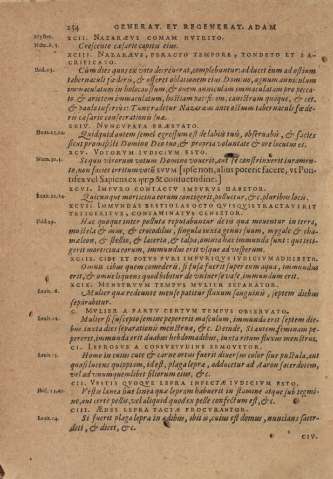 254 GENERAT. ET REGENERAT. ADAM
XCII. NAZARÆVS COMAM NVTRITO.
Crescente cæsarie capitis eius.
XCIII. NAZARÆVS, PERACTO TEMPORE, TONDETO ET SA-
CRIFICATO.
Cum dies quos ex voto decreuerat, complebuntur: adducet eum ad ostium
tabernaculi fœderis, & offeret oblationem eius Domino, agnum anniculum
immaculatum in holocaustum, & ouem anniculam immaculatam pro pecca-
to & arietem immaculatum, hostiam pacificam, canistrum quoque, & cet.
& paulo inferius: Tunc radetur Nazaræus ante ostium tabernaculi fœde-
ris cæsarie consecrationis suæ.
XCIV. NVNCVPATA PRÆSTATO.
Quidquid autem semel egressum est de labiis tuis, obseruabis, & facies
sicut promisisti Domino Deo tuo, & propria voluntate & ore locutus es.
XCV. VOTORVM IVDICIVM ESTO.
Si quis virorum votum Domino vouerit, aut se constrinxerit iuramen-
to, non faciet irritum verbum suum [ipse non, alius potens facere, vt Pon-
XCVI. IMPVRO CONTACTV IMPVRVS HABETOR.
Quicunque morticina eorum contigerit, polluetur, &c. pluribus locis.
XCVII. IMMVNDAS BESTIOLAS OCTO QVISQVIS TRACTAVERIT
TETIGERITVE, CONTAMINATVS CENSETOR.
Hæc quoque inter polluta reputabuntur de his quæ mouentur in terra,
mustela & mus, & crocodilus, singula iuxta genus suum, mygale & cha-
mæleon, & stellio, & lacerta, & talpa, omnia hæc immunda sunt: qui teti-
gerit morticina eorum, immundus erit vsque ad vesperum.
XCIIX. CIBI ET POTVS PVRI IMPVRIQVE IVDICIVM ADHIBETO.
Omnis cibus quem comedetis, si fusa fuerit super eum aqua, immundus
erit, & omne liquens quod bibitur de vniuerso vase, immundum erit.
XCIX. MENSTRVVM TEMPVS MVLIER SEPARATOR.
Mulier quæ redeunte mense patitur fluxum sanguinis, septem diebus
separabitur.
C. MVLIER A PARTV CERTVM TEMPVS OBSERVATO.
Mulier si suscepto semine pepererit masculum, immunda erit septem die-
bus iuxta dies separationis menstruæ, &c. Deinde, Si autem fœminam pe-
pererit, immunda erit duabus hebdomadibus, iuxta ritum fluxus menstrui.
CI. LEPROSVS A CONSVETVDINE REMOVETOR.
Homo in cuius cute & carne ortus fuerit diuersus color siue pustula, aut
quasi lucens quippiam, id est, plaga lepræ, adducetur ad Aaron sacerdotem,
vel ad vnumquemlibet filiorum eius, &c.
CII. VESTIS QVOQVE LEPRA INFECTÆ IVDICIVM ESTO.
Vestis lanea siue linea quæ lepram habuerit in stamine atque subtegmi-
ne, aut certe pellis, vel quidquid ex pelle confectum est, &c.
CIII. ÆDES LEPRA TACTÆ PROCVRANTOR.
Si fuerit plaga lepræ in ædibus, ibit is, cuius est domus, nuncians sacer-
doti, & dicet, &c.
CIV.